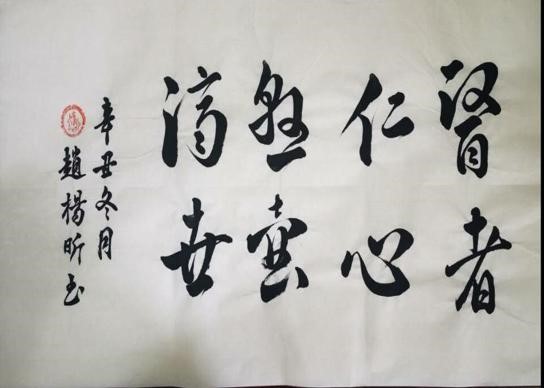 醫者
仁心
懸壺
濟世
辛丑冬月
趙楊昕